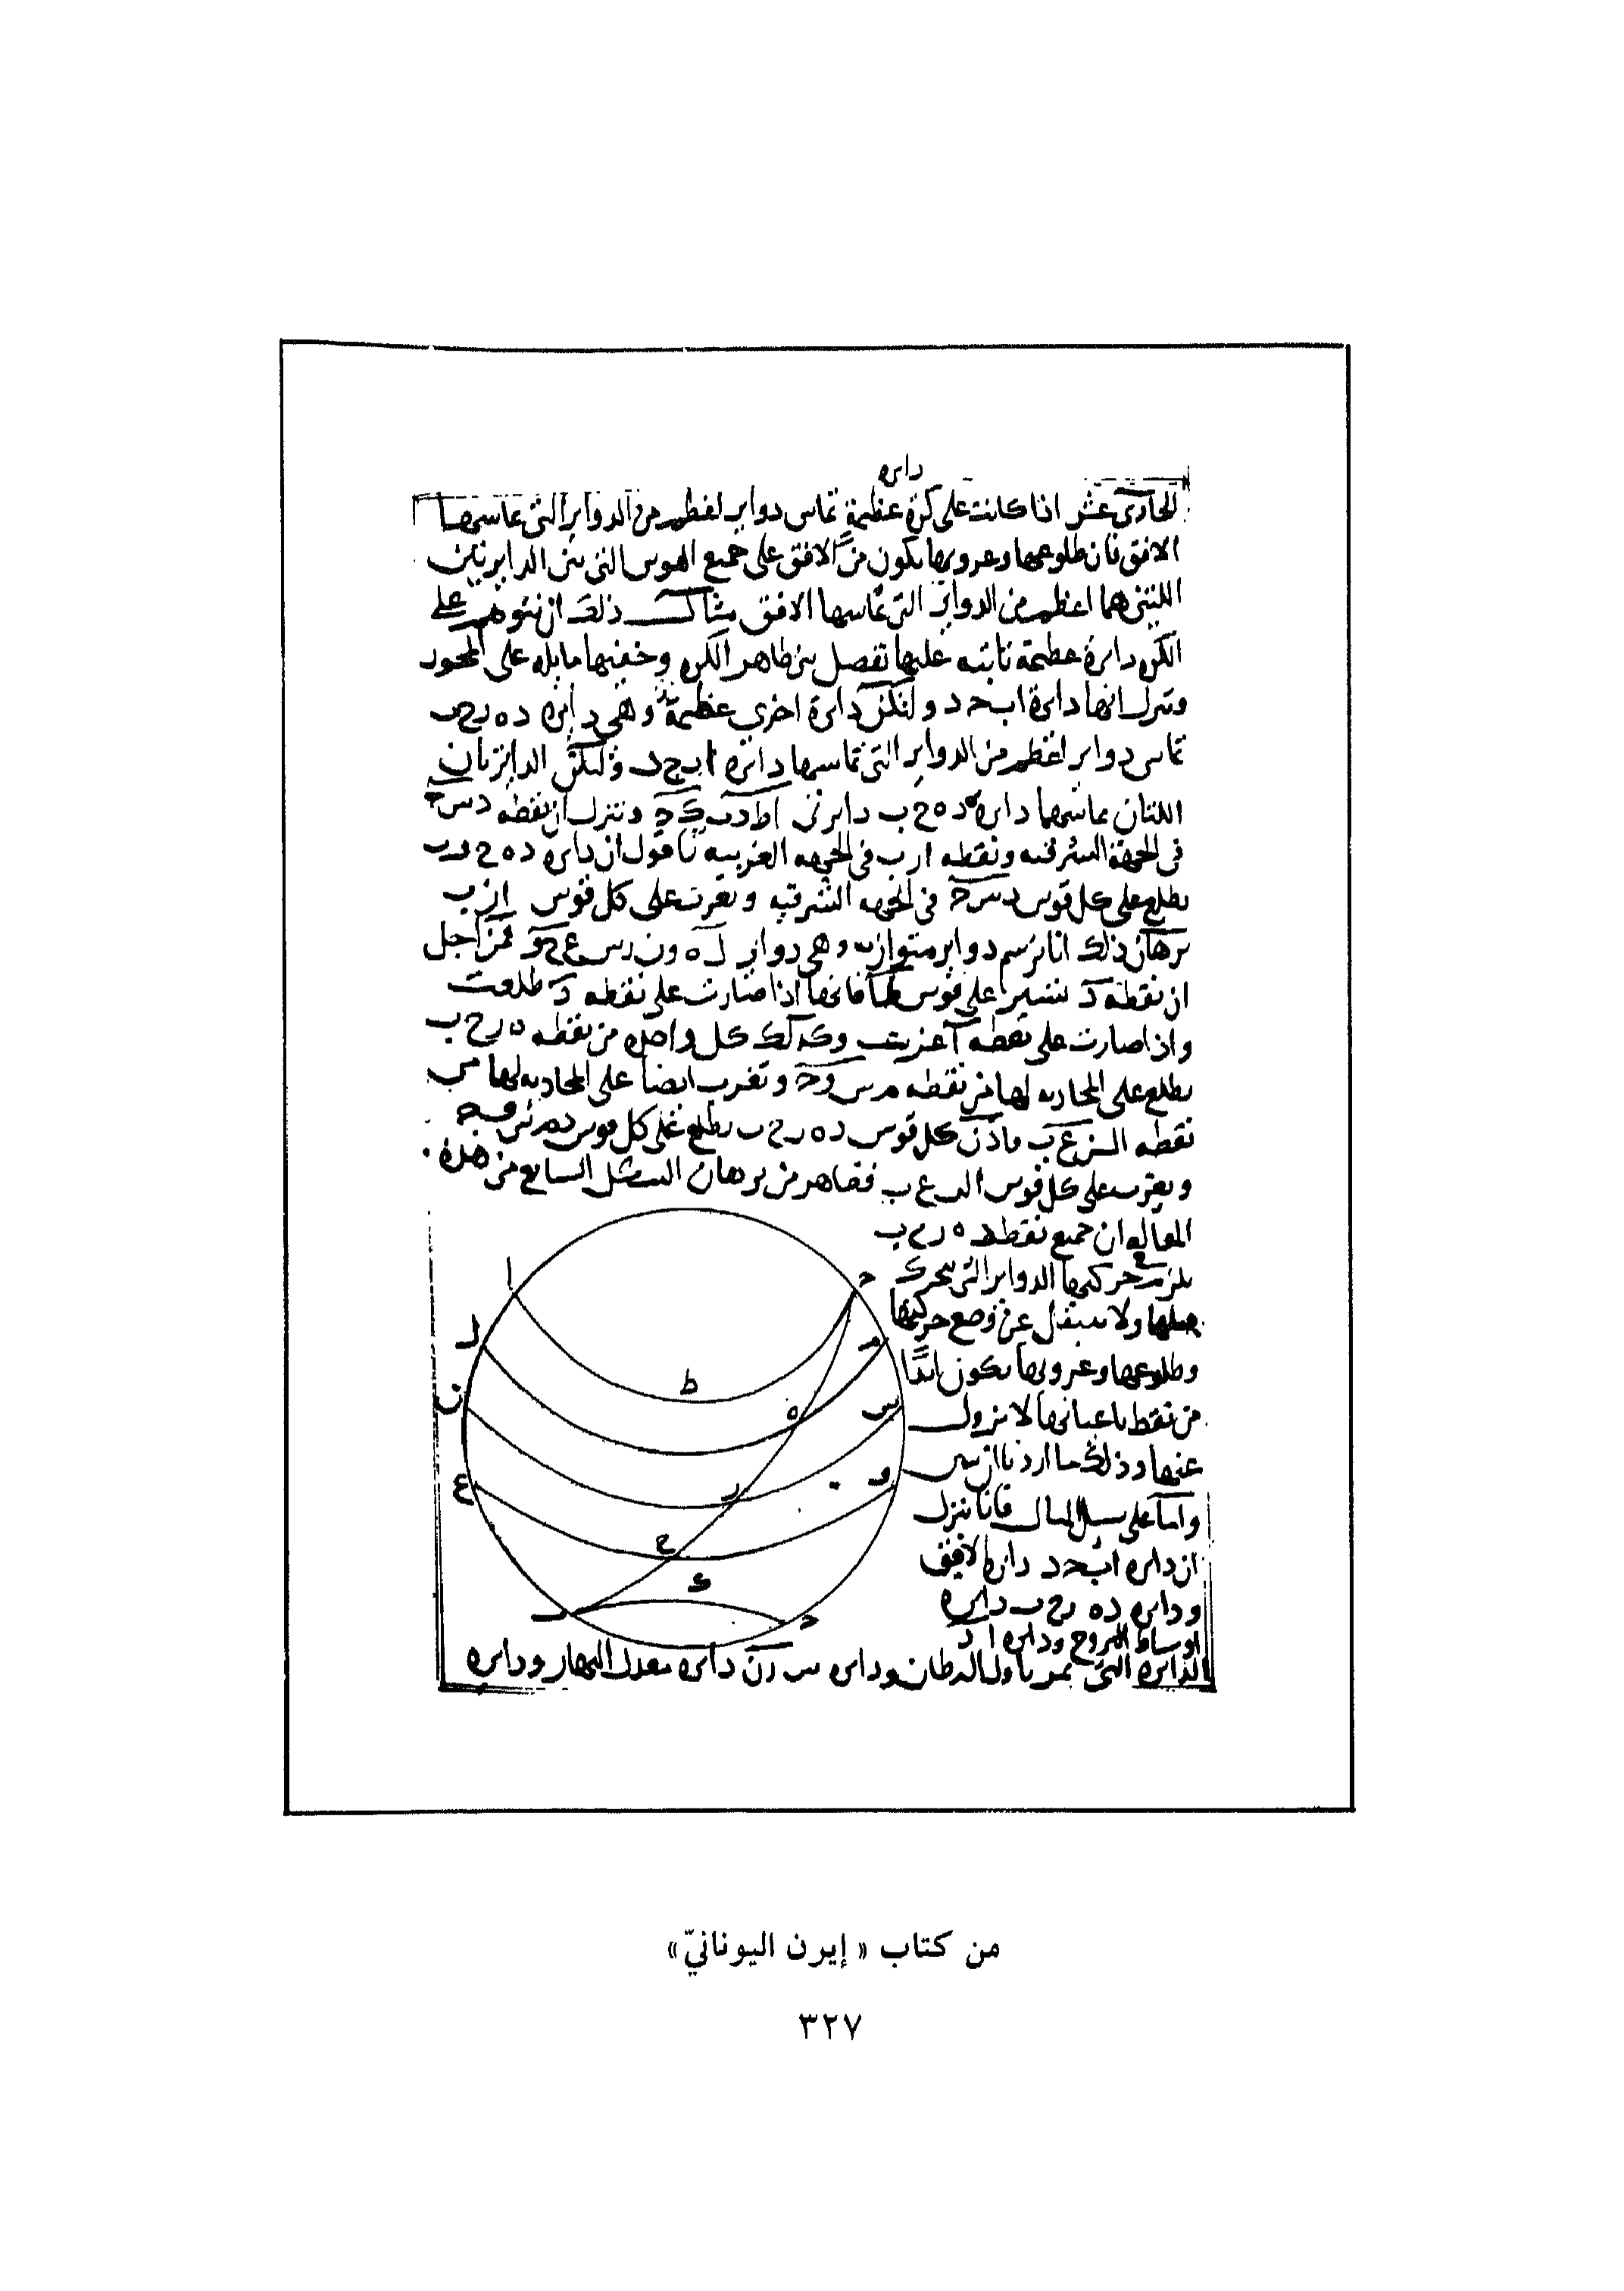 دايره
الحادى عشر اذا كانت على كرة عظيمة تماس دواير اعظم من الدواير التى تماسها
الافق فان طلوعها وغروبها يكون من الافق على جميع القوس التى بين الدايرتين
اللتين هما اعظم من الدواير التى تماسها الافق مثال ذلك ان نتوهم على
الكره دايرة عظيمة ثابته عليها تفصل بين ظاهر الكره وخفيها مايله على المحور
وننزل انها دايرة ا ب ح د ولتكن دايرة اخرى عظيمة وهى دايره د ه ر ح ب
تماس دواير اعظم من الدواير التى تماسها دايرة ا ب ج د ولتكن الدايرتان
اللتان تماسهما دايره د ه ح ب دايرتى ا ط د ب ك ح وننزل ان نقطه د س ح
فى الجهة الشرقيه ونقطه ا ر ب فى الجهه الغربيه فاقول ان دايره د ه ح ر ب
يطلع على كل قوس د س ح فى الجهه الشرقيه ويغرب على كل قوس ا ن ب
برهان ذلك انا نرسم دواير متوازيه وهى دواير ل ه و ن ر س ع ح و فمن اجل
ان نقطه د تسير على قوس ط ا فانها اذا صارت على نقطه د طلعت
واذا صارت على نقطه ا غربت وكذلك كل واحده من نقطه ه ر ح ب
يطلع على المحاديه لها من نقطه م س و ح وتغرب ايضا على المحاديه لها من
نقطه ا ل ن ع ب فاذن كل قوس د ه ر ح ب يطلع على كل قوس د م س و ح
ويغرب على كل قوس ا ل ع ب فظاهر من برهان الشكل السابع من هذه
المقاله ان جميع نقطه د ه ر ح ب
يلزم فى حركتها الدواير التى تتحرك
عليها ولا تنتقل عن وضع حركتها
وطلوعها وغروبها يكون ابدًا
من نقط باعيانها لا تزول
عنها وذلك ما اردنا ان نبين
واما على سبيل المثال فانا ننزل
ان دايره ا ب ح د دايرة الافق
ودايره د ه ر ح ب دايره
اوساط البروج ودايره ا د
الدايره التى تمر باول السرطان ودايره س ر ن دايره معدل النهار ودايره
ا
ح
ل
م
ط
ن
ه
س
و
ر
ع
ح
ك
ب
ح
من كتاب « إيرن اليونانيّ»
٣٢٧